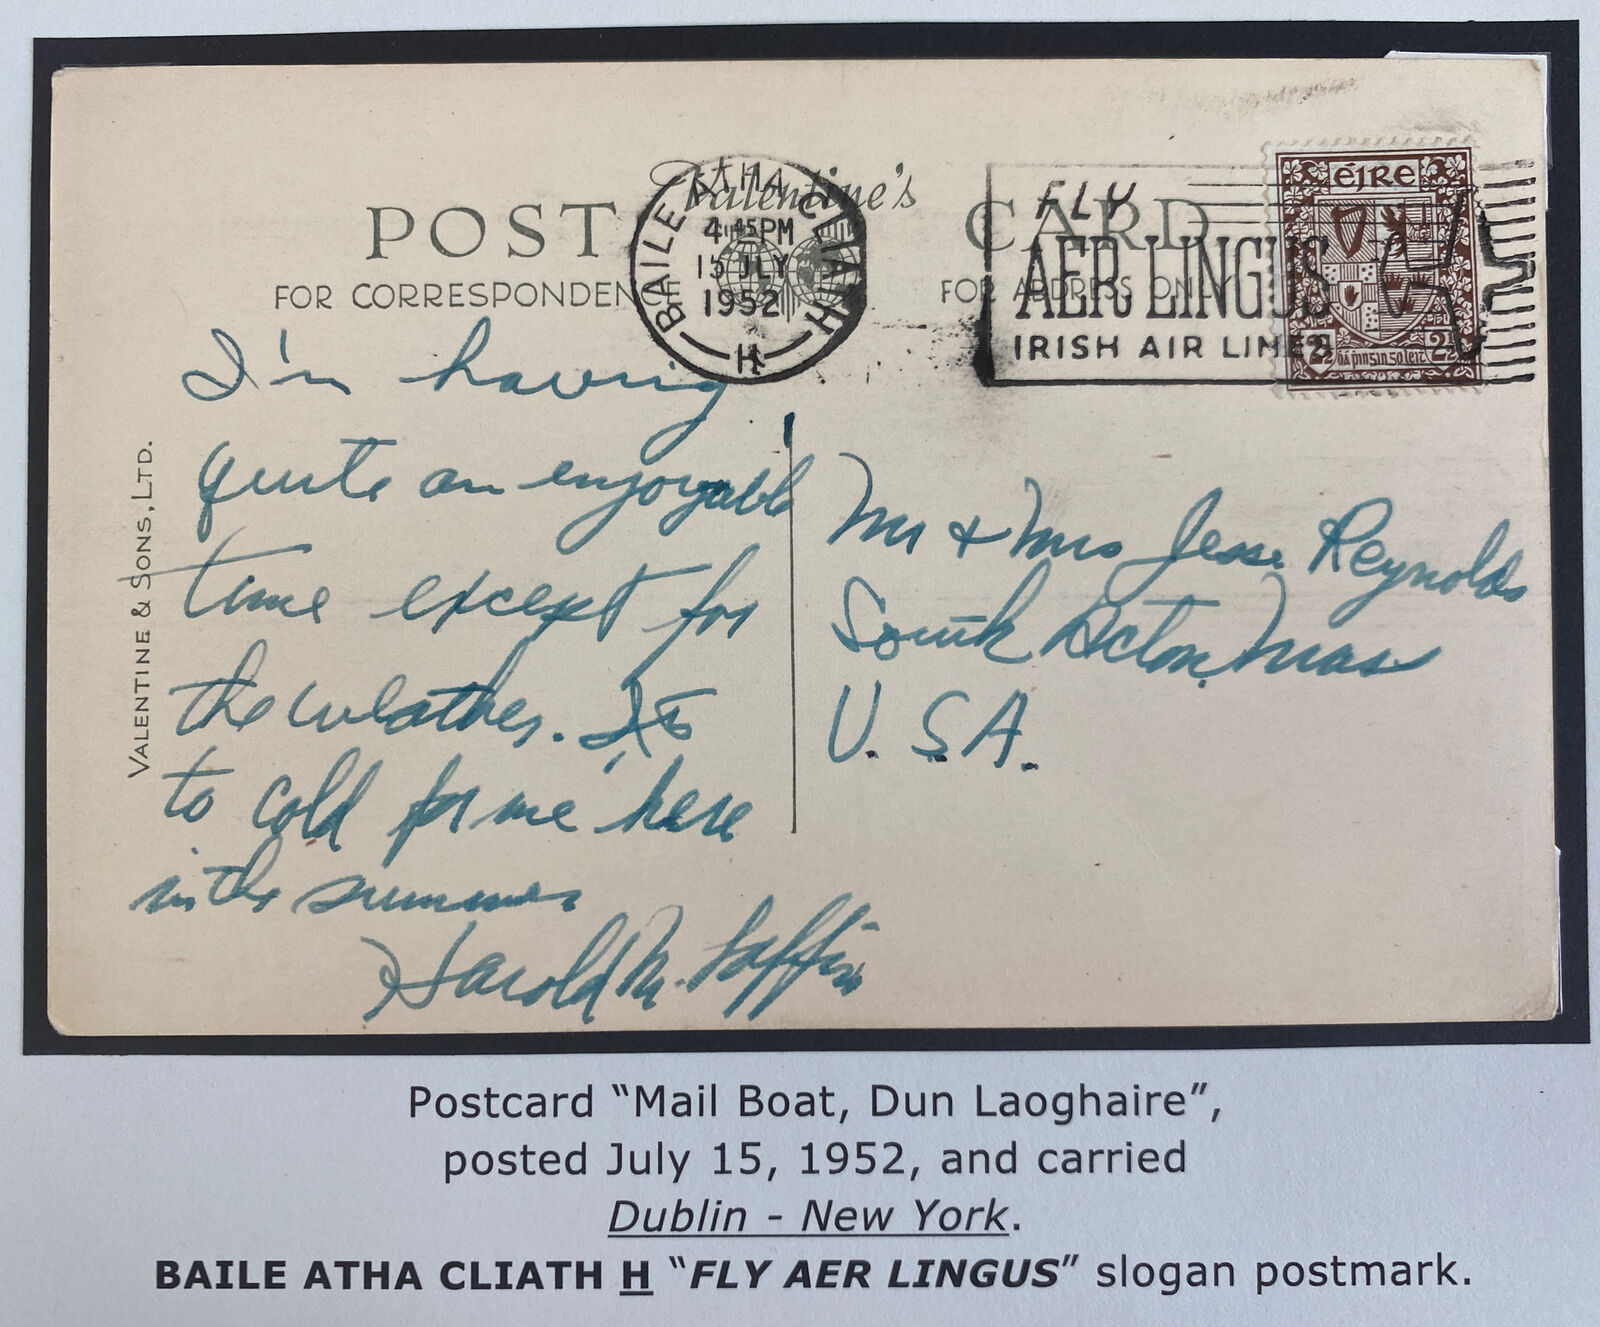 Valentine's
POST CARD
FOR CORRESPONDEN
FOR ADDRESS ONLY
BAILE ATHA CLIATH
4.45PM
15 JLY
1952
H
FLY
AER LINGUS
IRISH AIR LINES
éIRe
2½ 2½
VALENTINE & SONS, LTD.
I'm having
quite an enjoyable
time except for
the weather. It's
to cold for me here
in the summer
Harold M.
Mr & Mrs Jesse Reynolds
South Acton, Mass
U.S.A.
Postcard “Mail Boat, Dun Laoghaire”,
posted July 15, 1952, and carried
Dublin - New York.
BAILE ATHA CLIATH H “FLY AER LINGUS” slogan postmark.